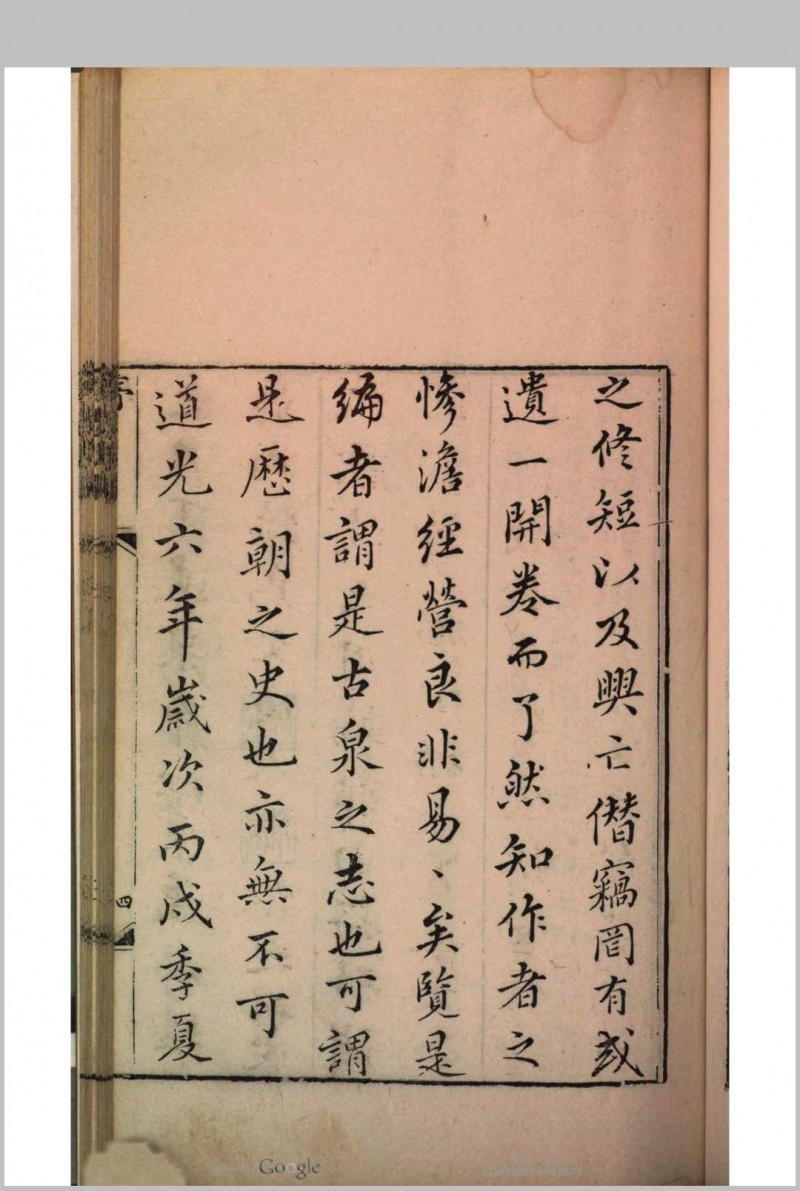 之修短以及興亡僭竊罔有或
遺一開卷而了然知作者之
慘澹經營良非易、矣覽是
編者謂是古泉之志也可謂
是歷朝之史也亦無不可
道光六年歲次丙戌季夏
序
四
Google